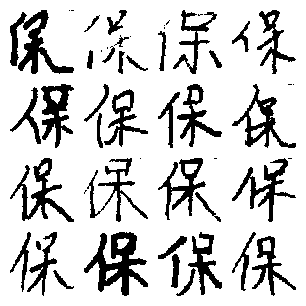 保保保保
保保保保
保保保保
保保保保